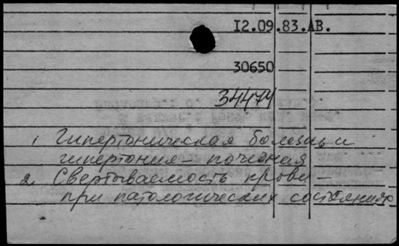 12.09.83.АВ.
30650
34474
1 Гипертоническая болезнь и
гипертония – почечная
2. Свертываемость крови –
при патологических состояниях